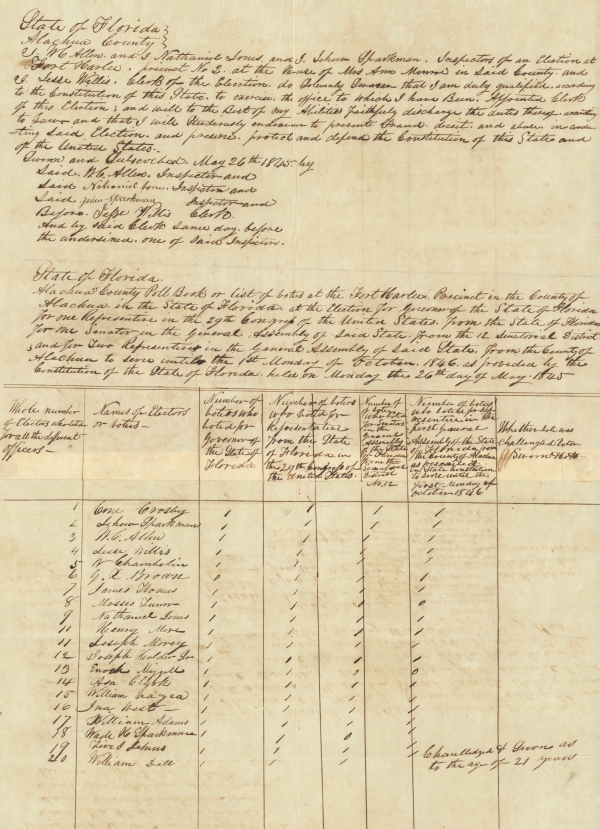 State of Florida }
Alachua County }
I, W. C. Allen. and I Nathaniel Jones, and I. Jehew Sparkman. Inspectors of an Election at
Fort Harlee. precinct No. 2. at the House of Mrs Ann Monroe in Said County. and
I. Jesse Willis. Clerk of the Election. do Solemnly Swear that I am duly qualified. according
to the Constitution of this State. to exercise the office to which I have Been. Appointed Clerk
of this Election; and will to the Best of my Abilities faithfully discharge the duties thereof according
to Law and that I will Studiously endeavor to prevent fraud. deceit. and abuse. in conduc
-ting Said Election. and preserve. protect and defend the Constitution of this State and
of the United States.
Sworn and Subscribed. May 26th 1845 by
Said. W. C. Allen. Inspector and
Said Nathaniel Jones. Inspector and
Said Jehew Sparkman Inspector and
Before. Jesse Willis Clerk
And by said Clerk same day. before
the undersined. one of Said Inspectors.
State of Florida.
Alachua County Poll Book or list of votes at the Fort Harlee. Precinct in the County of
Alachua. in the State of Florida at the Election for Governor of the State of Florida
for one Representive in the 29th Congress of the United States. from the State of Florida
for one Senator in the General Assembly of Said State. from the 12 Senatorial District
; and for Two Representives in the General Assembly of Said State, from the County of
Alachua to serve untill the 1st Monday of October. 1846. as provided by the
Constitution of the State of Florida. held on Monday the 26th day of May 1845
Whole number
of Electors who voted
for all the different
officers—
Names of Electors
or votes—
Number of
votes who
voted for
Governor of
the State of
Florida
Number of votes
who voted for
Representative
from the State
of Florida in
the 29th Congress of
the United States.
Number of
votes
who voted
for Senators
in the
General
Assembly
of the State
of Florida
from the
Senatorial
District
No. 12
Number of votes
who voted for Rep
resentive in the
first General
Assembly of the State
of Florida from
the County of Alachua
in State Constitution
to serve until the
first Monday of
October 1846
Whether vote was
challenged Voter
Sworn
1 Cone Crosby 1 1 1 1
2 Jehew Sparkman 1 1 1 1
3 W. C. Allen 1 1 1 1
4 Jesse Willis 1 1 1 1
5 W Chamberlin 1 1 1 1
6 G. X Brown 0 1 1 1
7 James Thomas 1 1 1 1
8 Mosses 1 1 1 0
9 Nathaniel Jones 1 1 1 1
11 Henry 1 1 1 1
11 Joseph 1 1 1 1
12 Joseph Holder 1 1 1 1
13 Enoch 1 1 1 0
14 Asa Clark 1 1 1 1
15 William 1 1 1 1
16 Ina West— 1 1 1 1
17 William Adams 1 1 1 1
18 Wade H Sparkman 1 1 0 1
19 Levi S Johns 1 1 1 1 Chanlledged & Sworn as
20 William Dell 1 1 1 1 to the age of 21 years